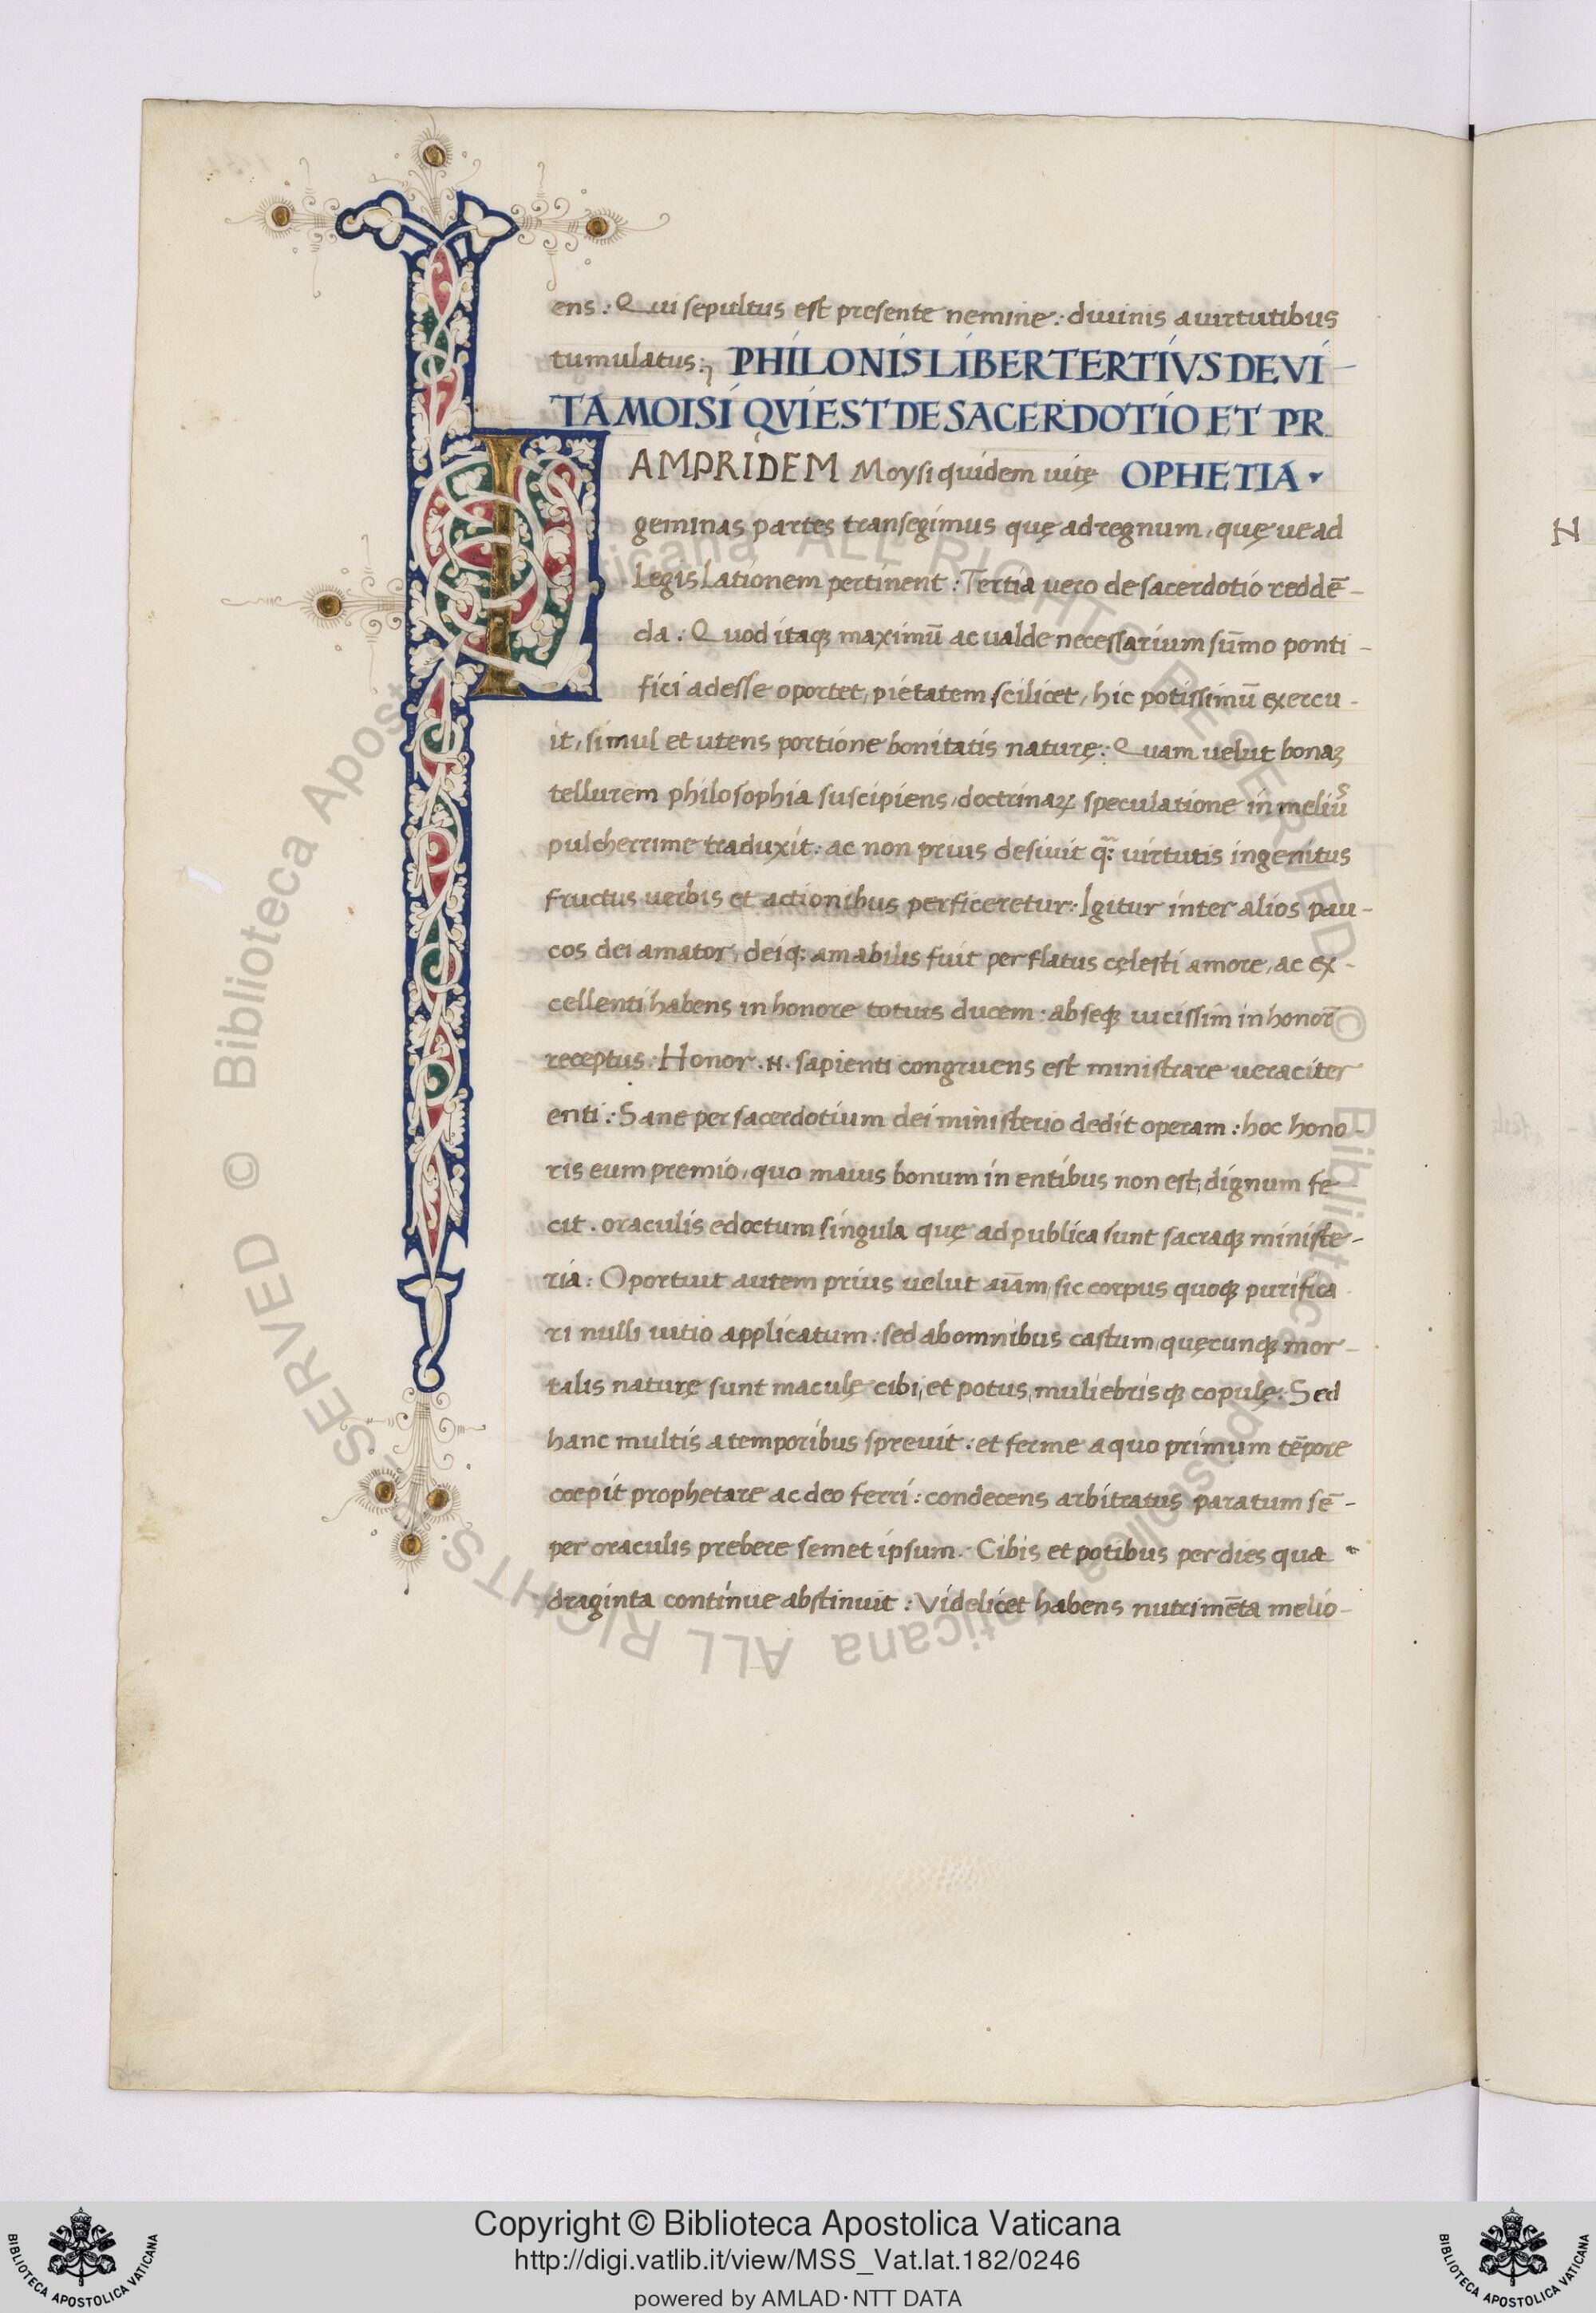 ens : Qui sepultus est presente nemine : diuinis a uirtutibus
tumulatus :, PHILONIS LIBER TERTIVS DE VI-
TA MOISI QVI EST DE SACERDOTIO ET PR
IAMPRIDEM Moysi quidem uitę OPHETIA ·
geminas partes transegimus quę ad regnum, quę ue ad
legislationem pertinent : Tertia uero de sacerdotio reddē-
da : Quod itaqꝫ maximū ac ualde necessarium sūmo ponti-
fici adesse oportet, pietatem scilicet, hic potissimū exercu-
it, simul et utens portione bonitatis naturę : Quam uelut bonaꝫ
tellurem philosophia suscipiens, doctrinaꝝ speculatione in meliūs
pulcherrime traduxit : ac non prius desiuit q̄ꝫ uirtutis ingenitus
fructus uerbis et actionibus perficeretur : Igitur inter alios pau-
cos dei amator, deiqꝫ amabilis fuit perflatus cęlesti amore, ac ex-
cellenti habens in honore totius ducem : ab seqꝫ uicissim in honor̄
receptus. Honor .N. sapienti congruens est ministrare ueraciter
enti : Sane per sacerdotium dei ministerio dedit operam : hoc hono-
ris eum premio, quo maius bonum in entibus non est, dignum fe
cit. oraculis edoctum singula quę ad publica sunt sacraqꝫ ministe-
ria : Oportuit autem prius uelut aīam, sic corpus quoqꝫ purifica
ri nulli uitio applicatum : sed ab omnibus castum, quęcunqꝫ mor-
talis naturę sunt maculę cibi, et potus, muliebrisqꝫ copulę : Sed
hanc multis a temporibus spreuit : et ferme a quo primum tēpore
coepit prophetare ac deo ferri : condecens arbitratus paratum sē-
per oraculis prebere semet ipsum. Cibis et potibus per dies qua-
draginta continue abstinuit : Videlicet habens nutrimēta melio-
N
Biblioteca Apostolica Vaticana ALL RIGHTS RESERVED ©
BIBLIOTECA APOSTOLICA VATICANA
Copyright © Biblioteca Apostolica Vaticana
http://digi.vatlib.it/view/MSS_Vat.lat.182/0246
powered by AMLAD·NTT DATA
BIBLIOTECA APOSTOLICA VATICANA